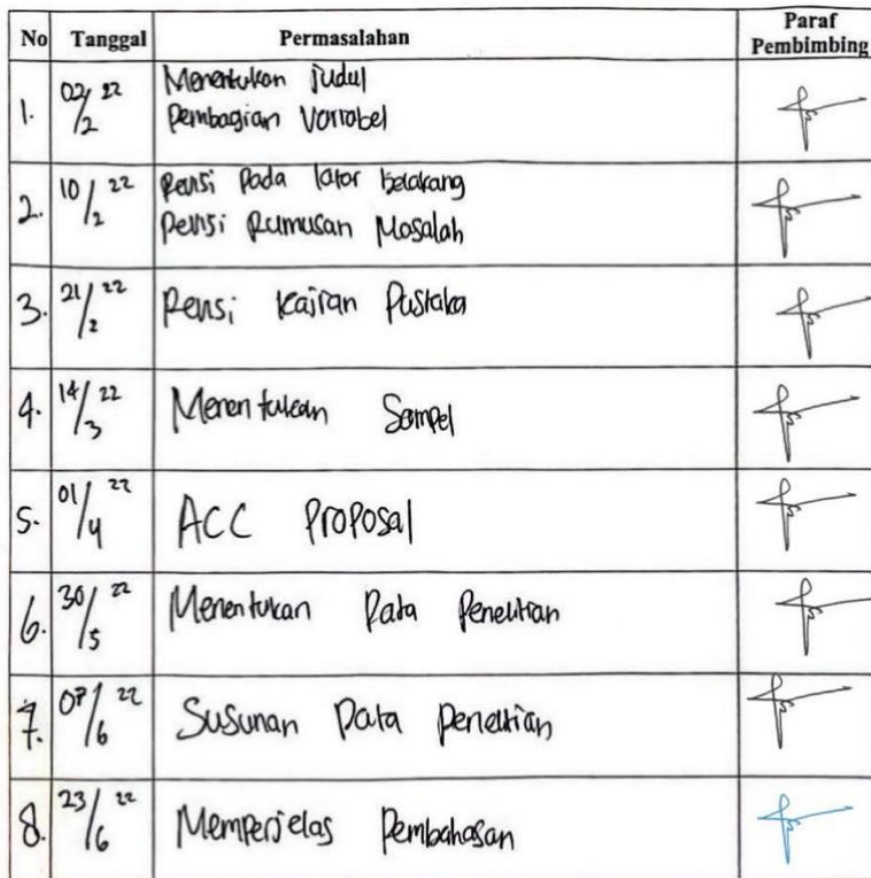 No Tanggal Permasalahan Paraf
Pembimbing
1. 02/2 22 Menentukan Judul
Pembagian Variabel
2. 10/2 22 Revisi Pada latar belakang
Revisi Rumusan Masalah
3. 21/2 22 Revisi Kajian Pustaka
4. 14/3 22 Menentukan Sampel
5. 01/4 22 ACC Proposal
6. 30/5 22 Menentukan Data Penelitian
7. 07/6 22 Susunan Data penelitian
8. 23/6 22 Memperjelas Pembahasan